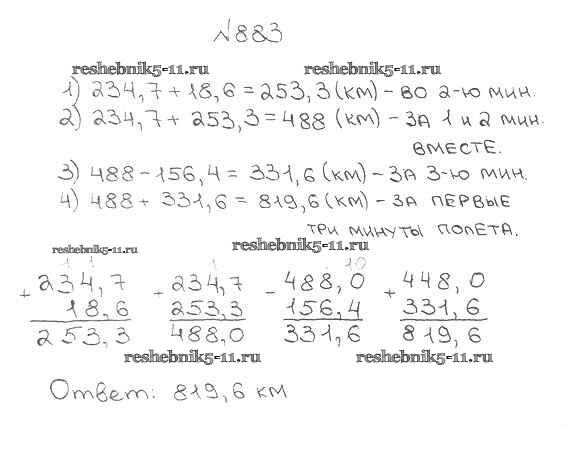 №883
reshebnik5-11.ru reshebnik5-11.ru
1) 234,7 + 18,6 = 253,3 (км) - во 2-ю мин.
2) 234,7 + 253,3 = 488 (км) - за 1 и 2 мин.
вместе.
3) 488 - 156,4 = 331,6 (км) - за 3-ю мин.
4) 488 + 331,6 = 819,6 (км) - за первые
три минуты полета.
reshebnik5-11.ru reshebnik5-11.ru
1 1 1 10
+ 234,7 + 234,7 - 488,0 + 448,0
18,6 253,3 156,4 331,6
253,3 488,0 331,6 819,6
reshebnik5-11.ru reshebnik5-11.ru
Ответ: 819,6 км